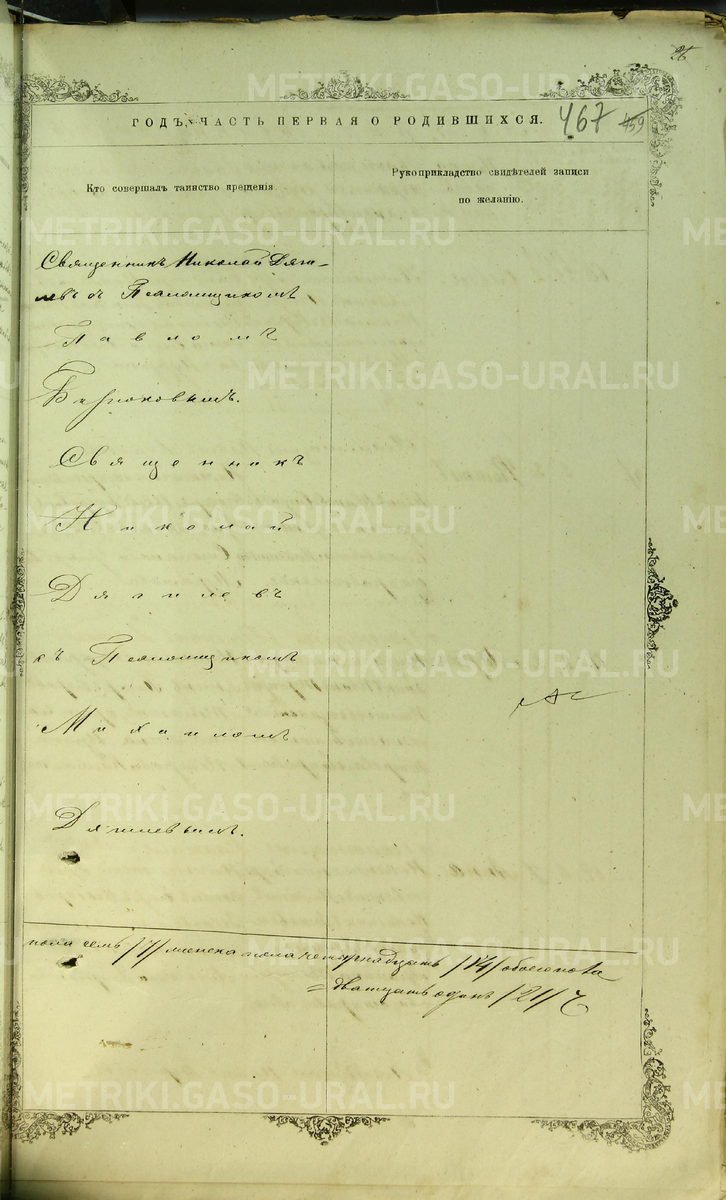 26
ГОДЪ, ЧАСТЬ ПЕРВАЯ О РОДИВШИХСЯ. 467 459
Кто совершалъ таинство крещенія
Рукоприкладство свидѣтелей записи
по желанію.
Священникъ Николай Дяги-
левъ съ Псаломщикомъ
Павломъ
Бирюковымъ.
Священникъ
Николай
Дягилевъ
съ Псаломщикомъ
Михаиломъ
Дягилевымъ.
пола семь /7/ женска пола четырнадцать /14/ обоего пола
= двадцать одинъ /21/
METRIKI.GASO-URAL.RU